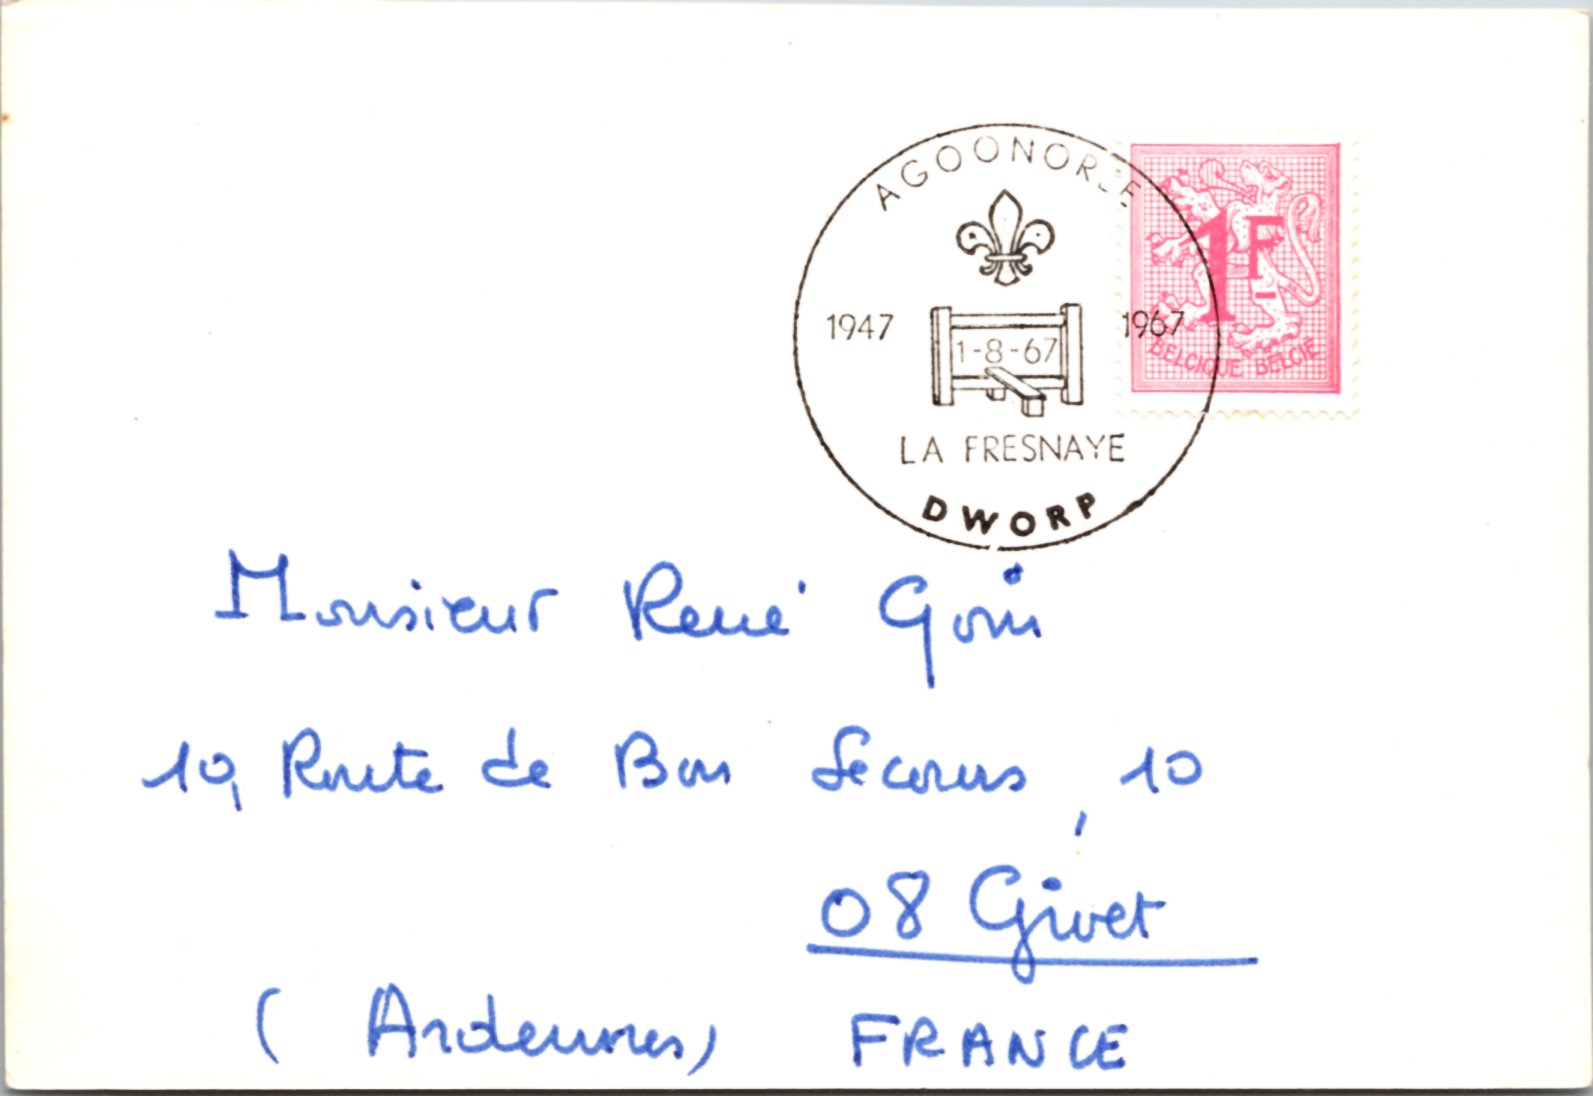 AGOONOREE
1947 1-8-67 1967
LA FRESNAYE
DWORP
1F
BELGIQUE BELGIË
Monsieur René Goin
10, Route de Bon Secours, 10
08 Givet
(Ardennes) FRANCE